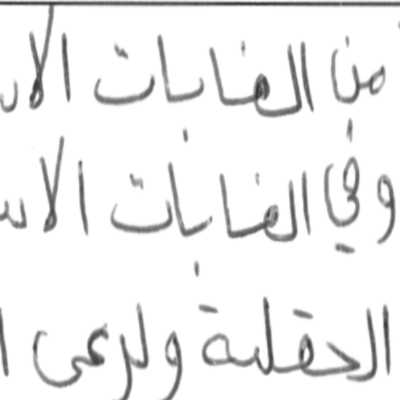 من الغابات الا
وفي الغابات الا
الحقلية ولرعي ا